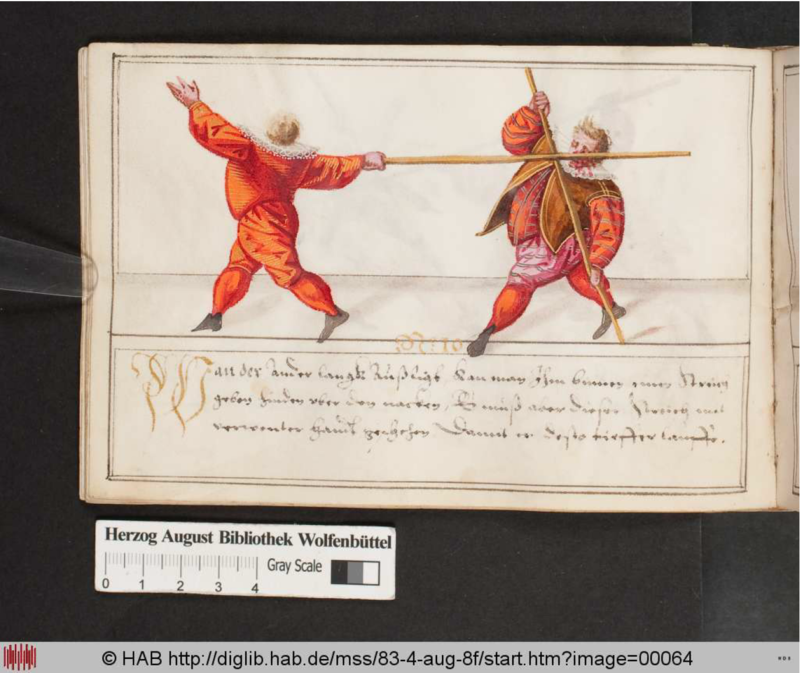 No: 10
Wan der ander langk Außligt Kan man Ihm binnen einen Streich
geben hinden vber den nacken, Es muß aber dieser Streich mit
verwenter handt geschehen, Damit er desto tieffer lauffe.
Herzog August Bibliothek Wolfenbüttel
Gray Scale
0 1 2 3 4
© HAB http://diglib.hab.de/mss/83-4-aug-8f/start.htm?image=00064